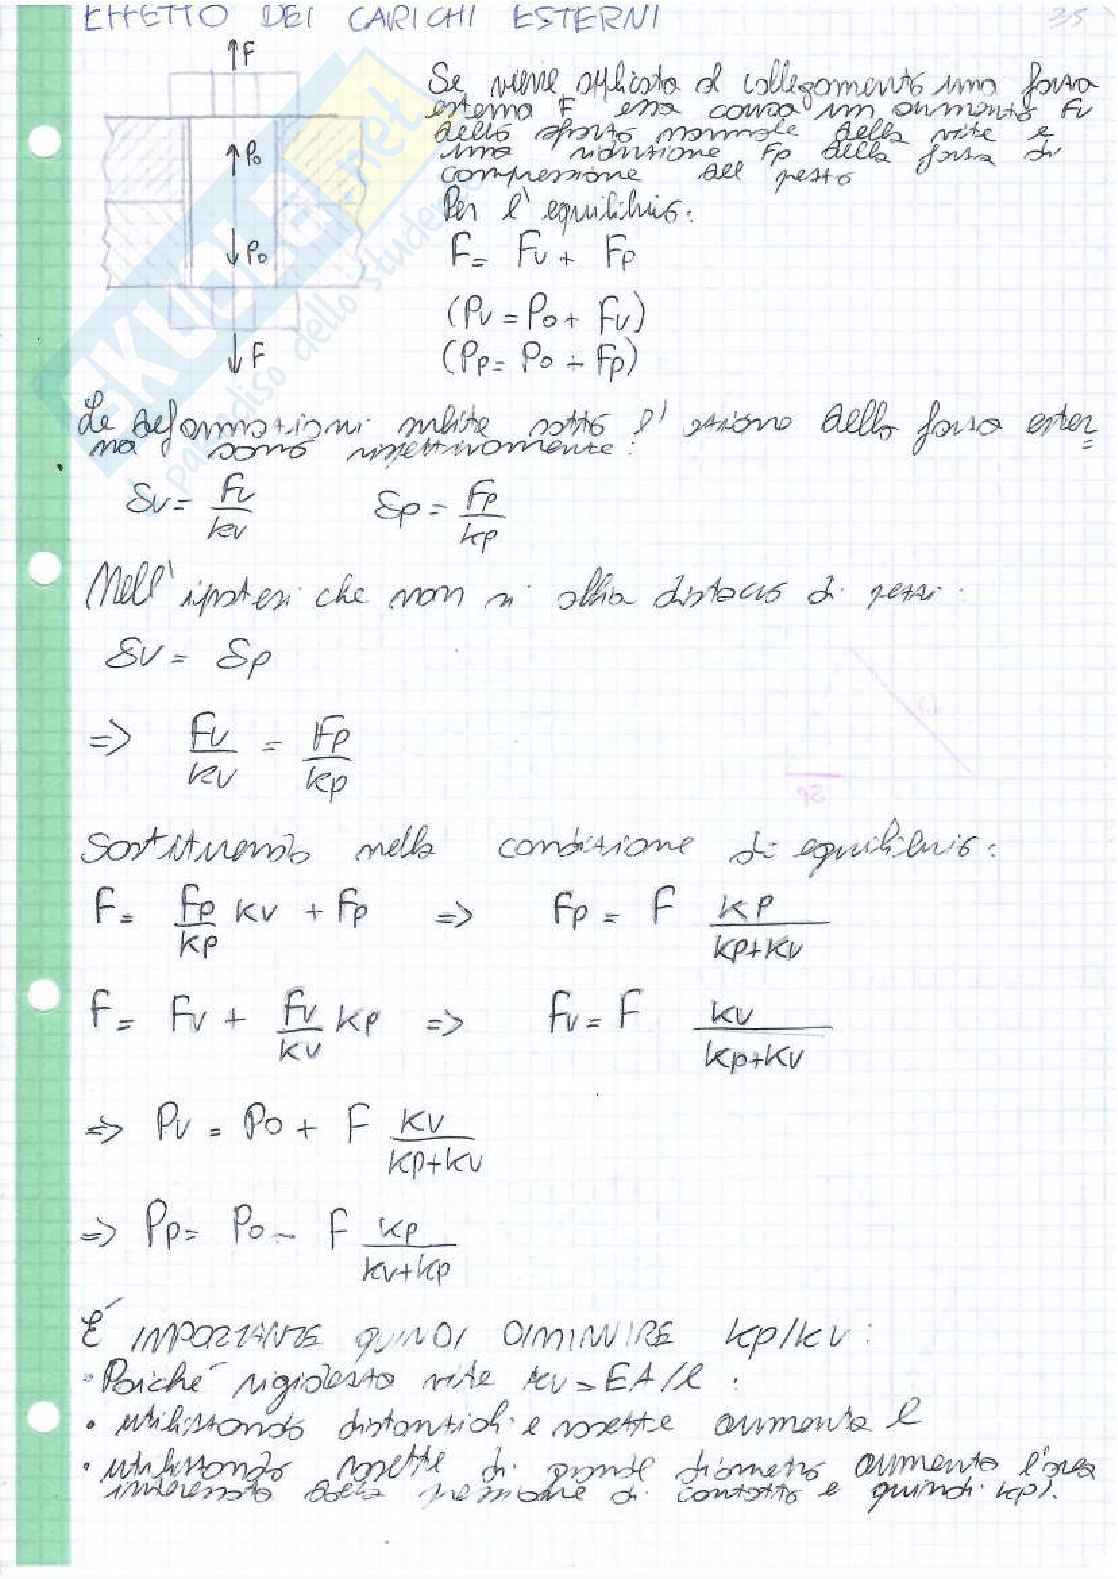 EFFETTO DEI CARICHI ESTERNI
35
F
Se viene applicata al collegamento una forza
esterna F essa causa un aumento Fv
dello sforzo normale della vite e
una riduzione Fp della forza di
compressione del pezzo
Per l'equilibrio:
F = Fv + Fp
(Pv = Po + Fv)
(Pp = Po ÷ Fp)
Po
Po
F
Le deformazioni subite sotto l'azione della forza ester=
na sono rispettivamente:
δv = Fv/kv δp = Fp/kp
Nell'ipotesi che non si abbia distacco di pezzi:
δv = δp
=> Fv/kv = Fp/kp
Sostituendo nella condizione di equilibrio:
F = Fp/kp kv + Fp => Fp = F kp/kp+kv
F = Fv + Fv/kv kp => Fv = F kv/kp+kv
=> Pv = Po + F kv/kp+kv
=> Pp = Po - F kp/kv+kp
É IMPORTANTE QUINDI DIMINUIRE kp/kv:
• Poiché rigidezza vite kv = EA/l:
• utilizzando distanziali e rosette aumenta l
• utilizzando rosette di grande diametro aumenta l'area
interessata dalla pressione di contatto e quindi kp).
SKUOLA.net
il paradiso dello studente